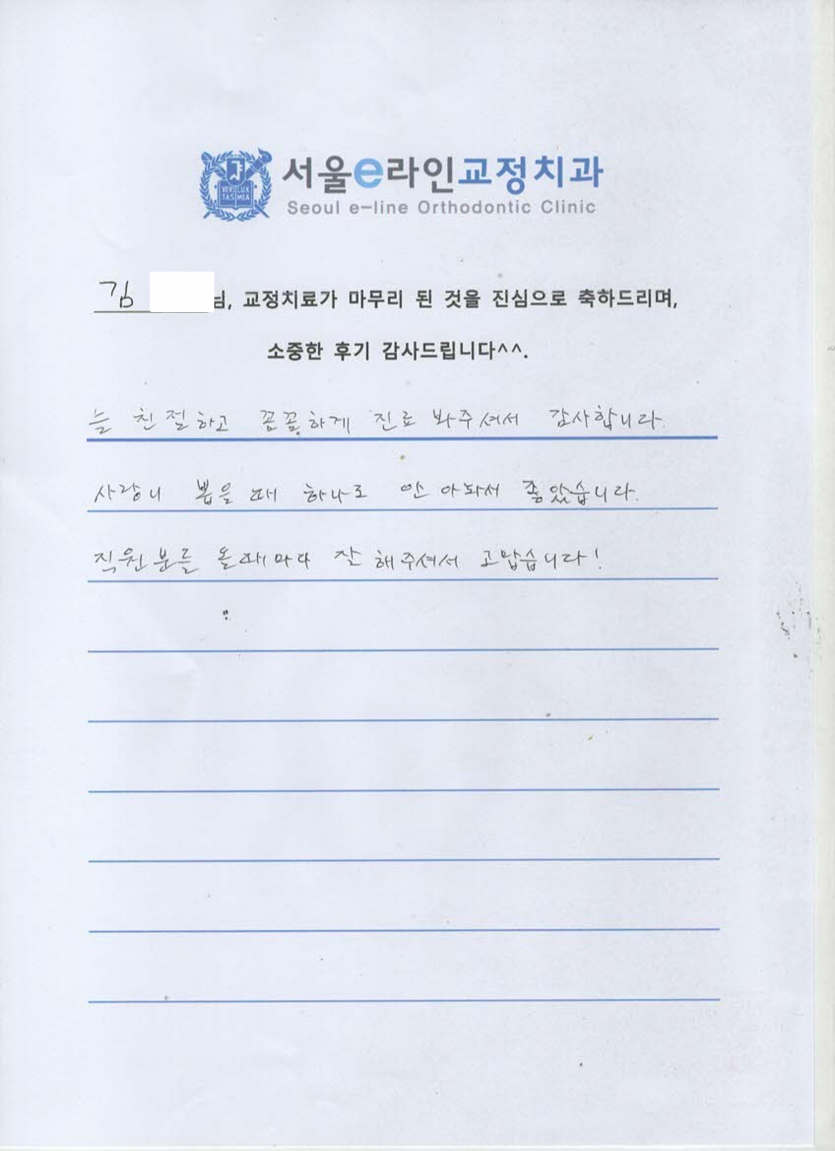 VERI LUX
TAS MEA
서울e라인교정치과
Seoul e-line Orthodontic Clinic
김 님, 교정치료가 마무리 된 것을 진심으로 축하드리며,
소중한 후기 감사드립니다^^.
늘 친절하고 꼼꼼하게 진료 봐주셔서 감사합니다.
사랑니 뽑을 때 하나도 안 아파서 좋았습니다.
직원분들 올때마다 잘 해주셔서 고맙습니다!